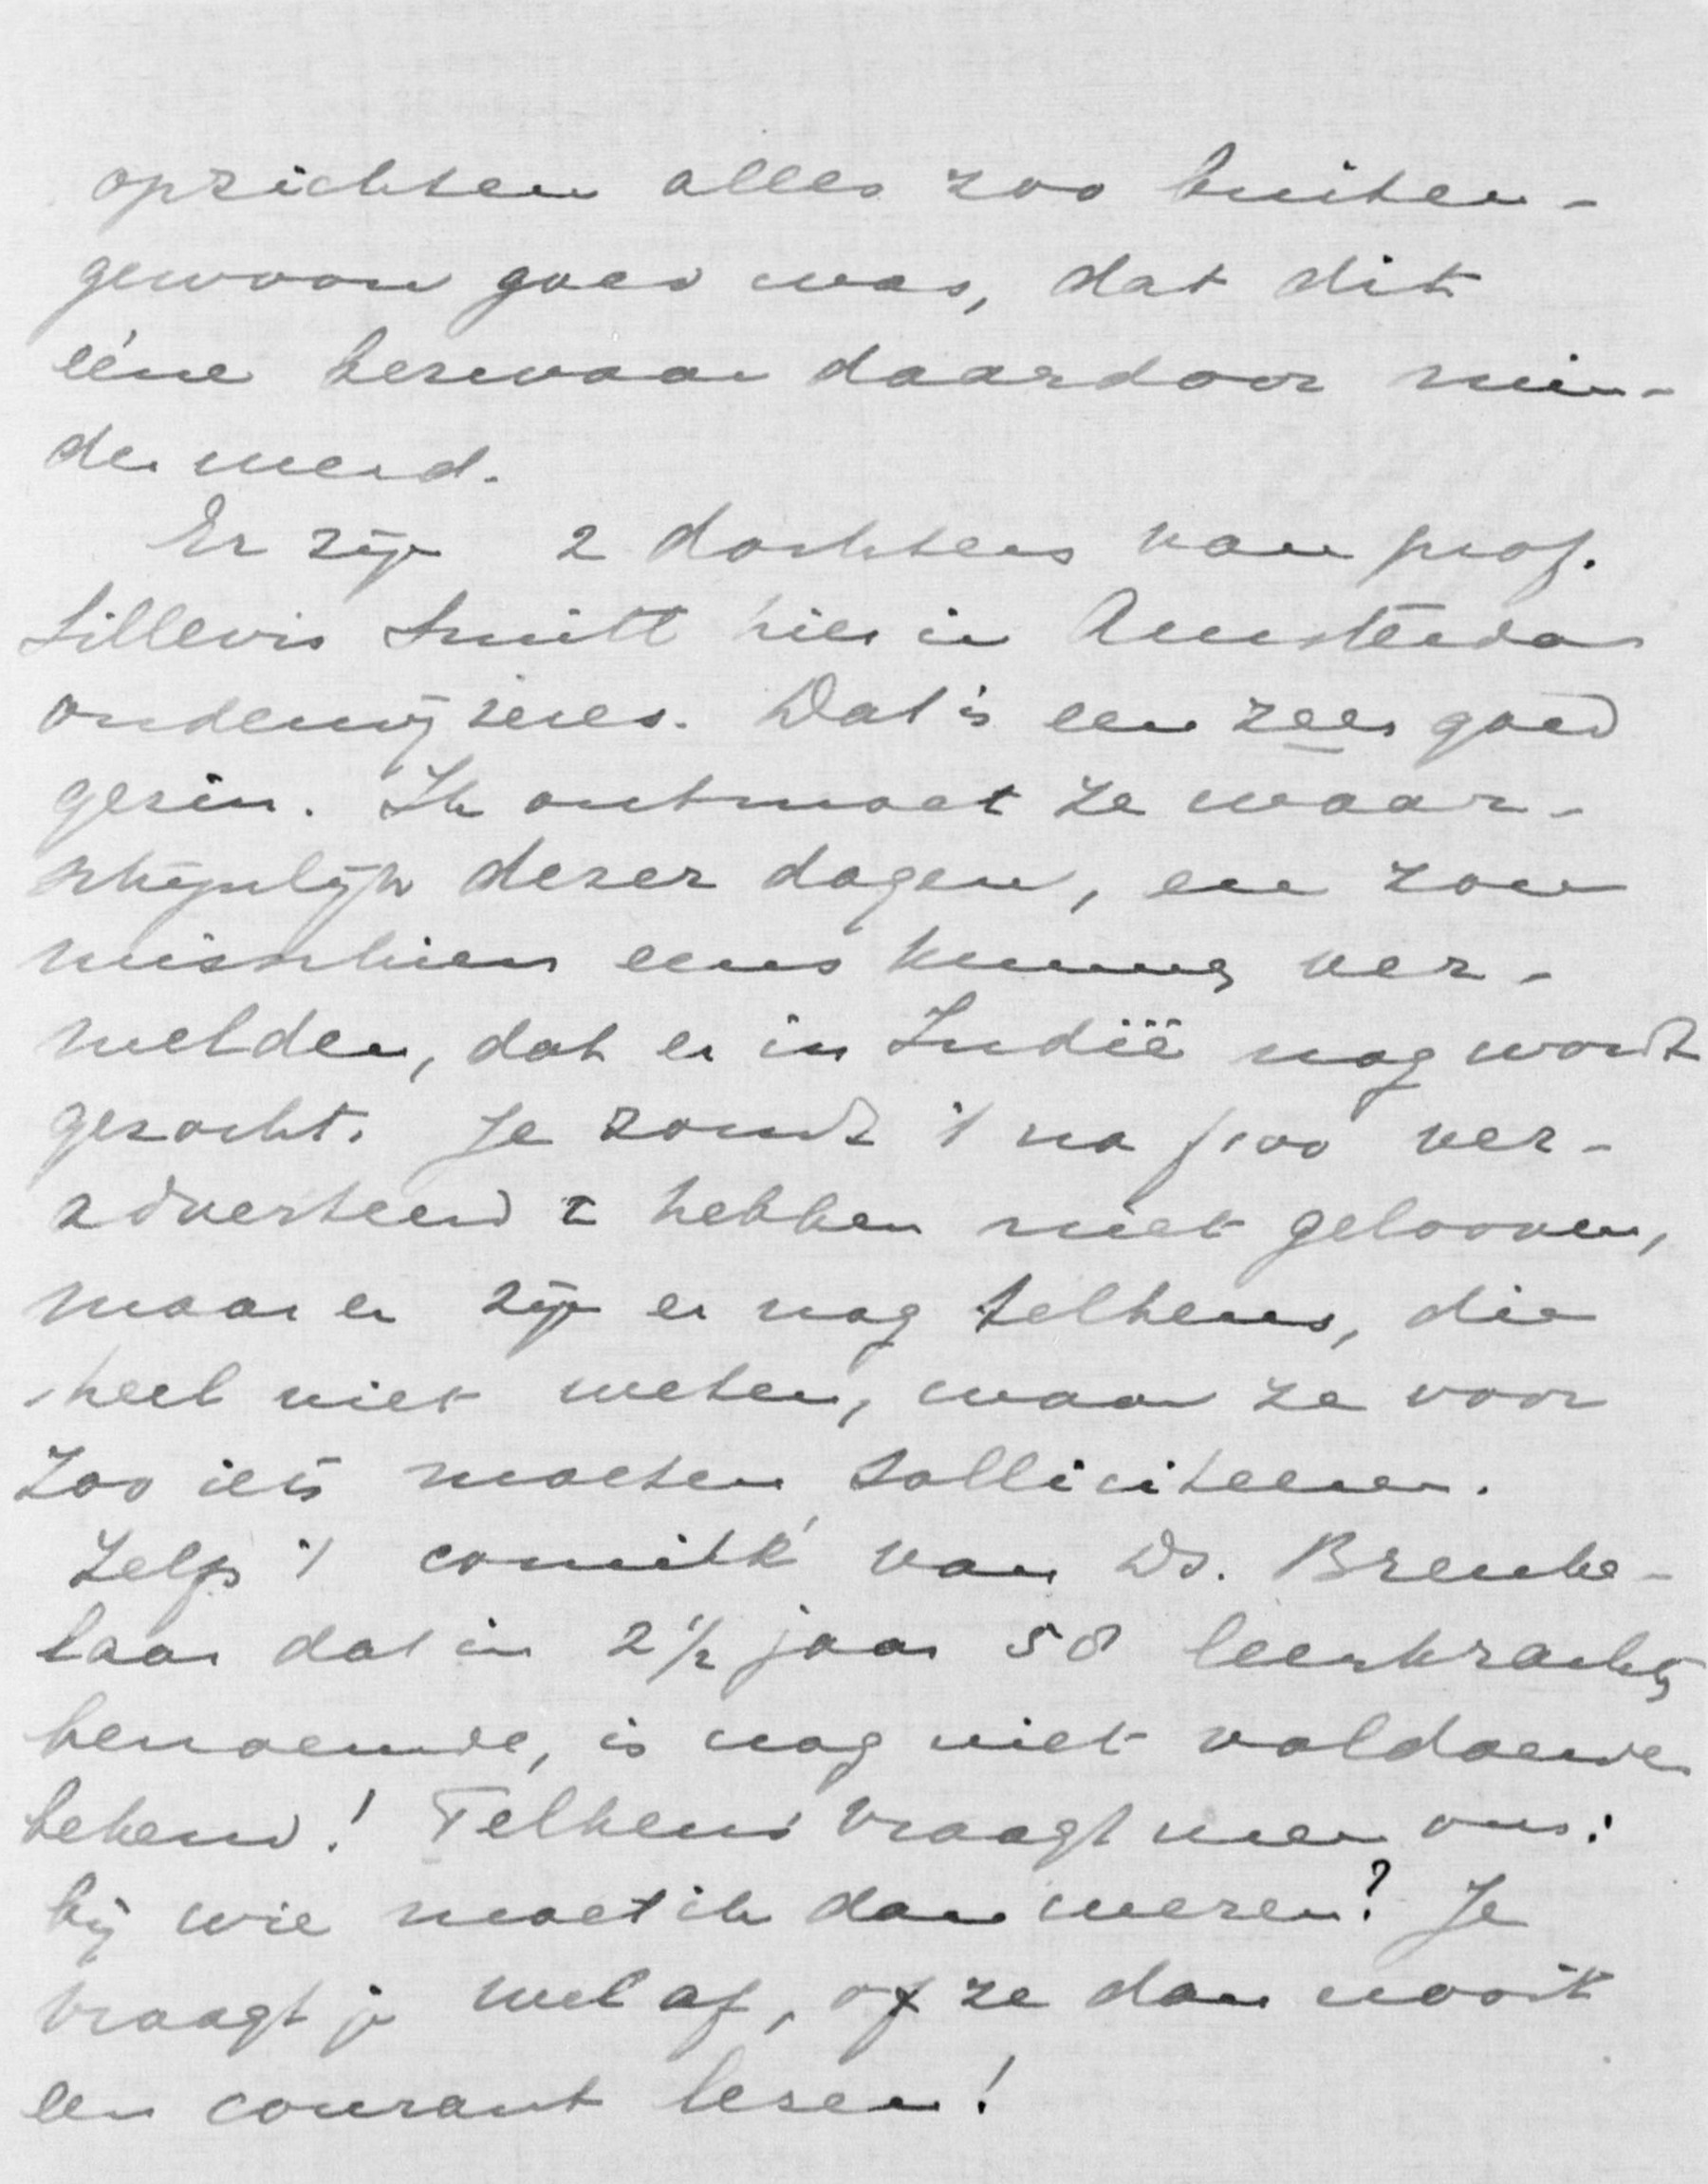 opzichten alles zoo buiten-
gewoon goed was, dat dit
ééne bezwaar daardoor min-
der werd.
Er zijn 2 dochters van prof.
Sillevis Smitt hier in Amsterdam
onderwijzeres. Dat is een zeer goed
gezin. Ik ontmoet ze waar-
schijnlijk dezer dagen, en zou
misschien eens kunnen ver-
melden, dat er in Indië nog wordt
gezocht. Je zoudt 't na f100 ver-
adverteerd te hebben niet gelooven,
maar er zijn er nog telkens, die
heel niet weten, waar ze voor
zoo iets moeten solliciteeren.
Zelfs 't comité van Ds. Breuke-
laar dat in 2½ jaar 58 leerkrachten
benoemde, is nog niet voldoende
bekend! Telkens vraagt men ons:
bij wie moet ik dan wezen? Je
vraagt je wel af, of ze dan nooit
een courant lezen!